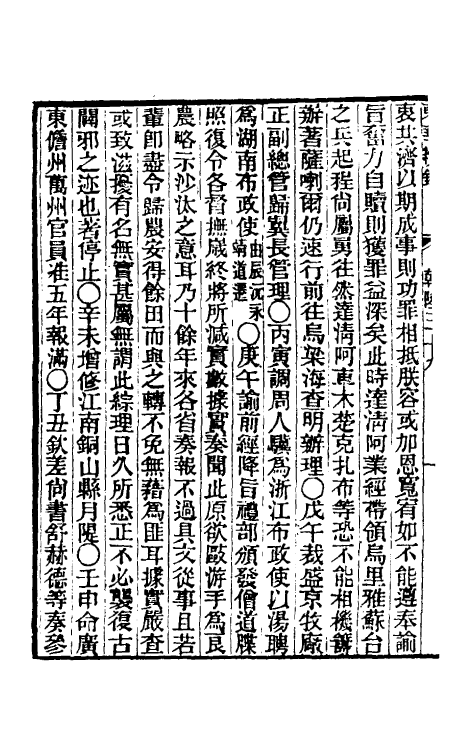 衷共濟以期成事則功罪相抵朕容或加恩寬宥如不能遵奉諭
旨奮力自贖則獲罪益深矣此時達淸阿業經帶領烏里雅蘇台
之兵起程尚屬勇往然達淸阿車木楚克扎布等恐不能相機籌
辦著薩喇爾仍速行前往烏梁海查明辦理〇戊午裁盛京牧廠
正副總管歸翼長管理〇丙寅調周人驥爲浙江布政使以湯聘
爲湖南布政使由辰沅永靖道遷〇庚午諭前經降旨禮部頒發僧道牒
照復令各督撫歲終將所減實數據實奏聞此原欲敺游手爲良
農略示沙汰之意耳乃十餘年來各省奏報不過具文從事且若
輩卽盡令歸農安得餘田而與之轉不免無藉爲匪耳據實嚴查
或致滋擾有名無實甚屬無謂此綜理日久所悉正不必襲復古
闢邪之迹也著停止〇辛未增修江南銅山縣月隄〇壬申命廣
東儋州萬州官員准五年報滿〇丁丑欽差尚書舒赫德等奏參